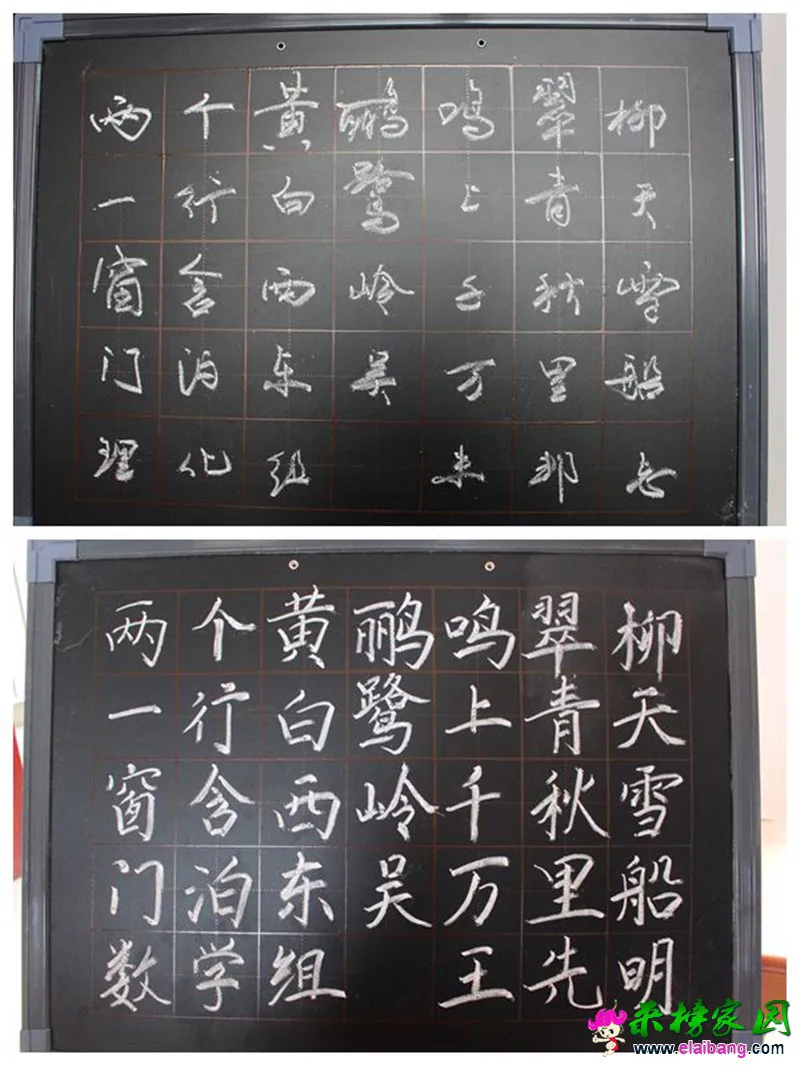 两个黄鹂鸣翠柳
一行白鹭上青天
窗含西岭千秋雪
门泊东吴万里船
理化组
两个黄鹂鸣翠柳
一行白鹭上青天
窗含西岭千秋雪
门泊东吴万里船
数学组 王先明
来榜家园
www.elaibang.com